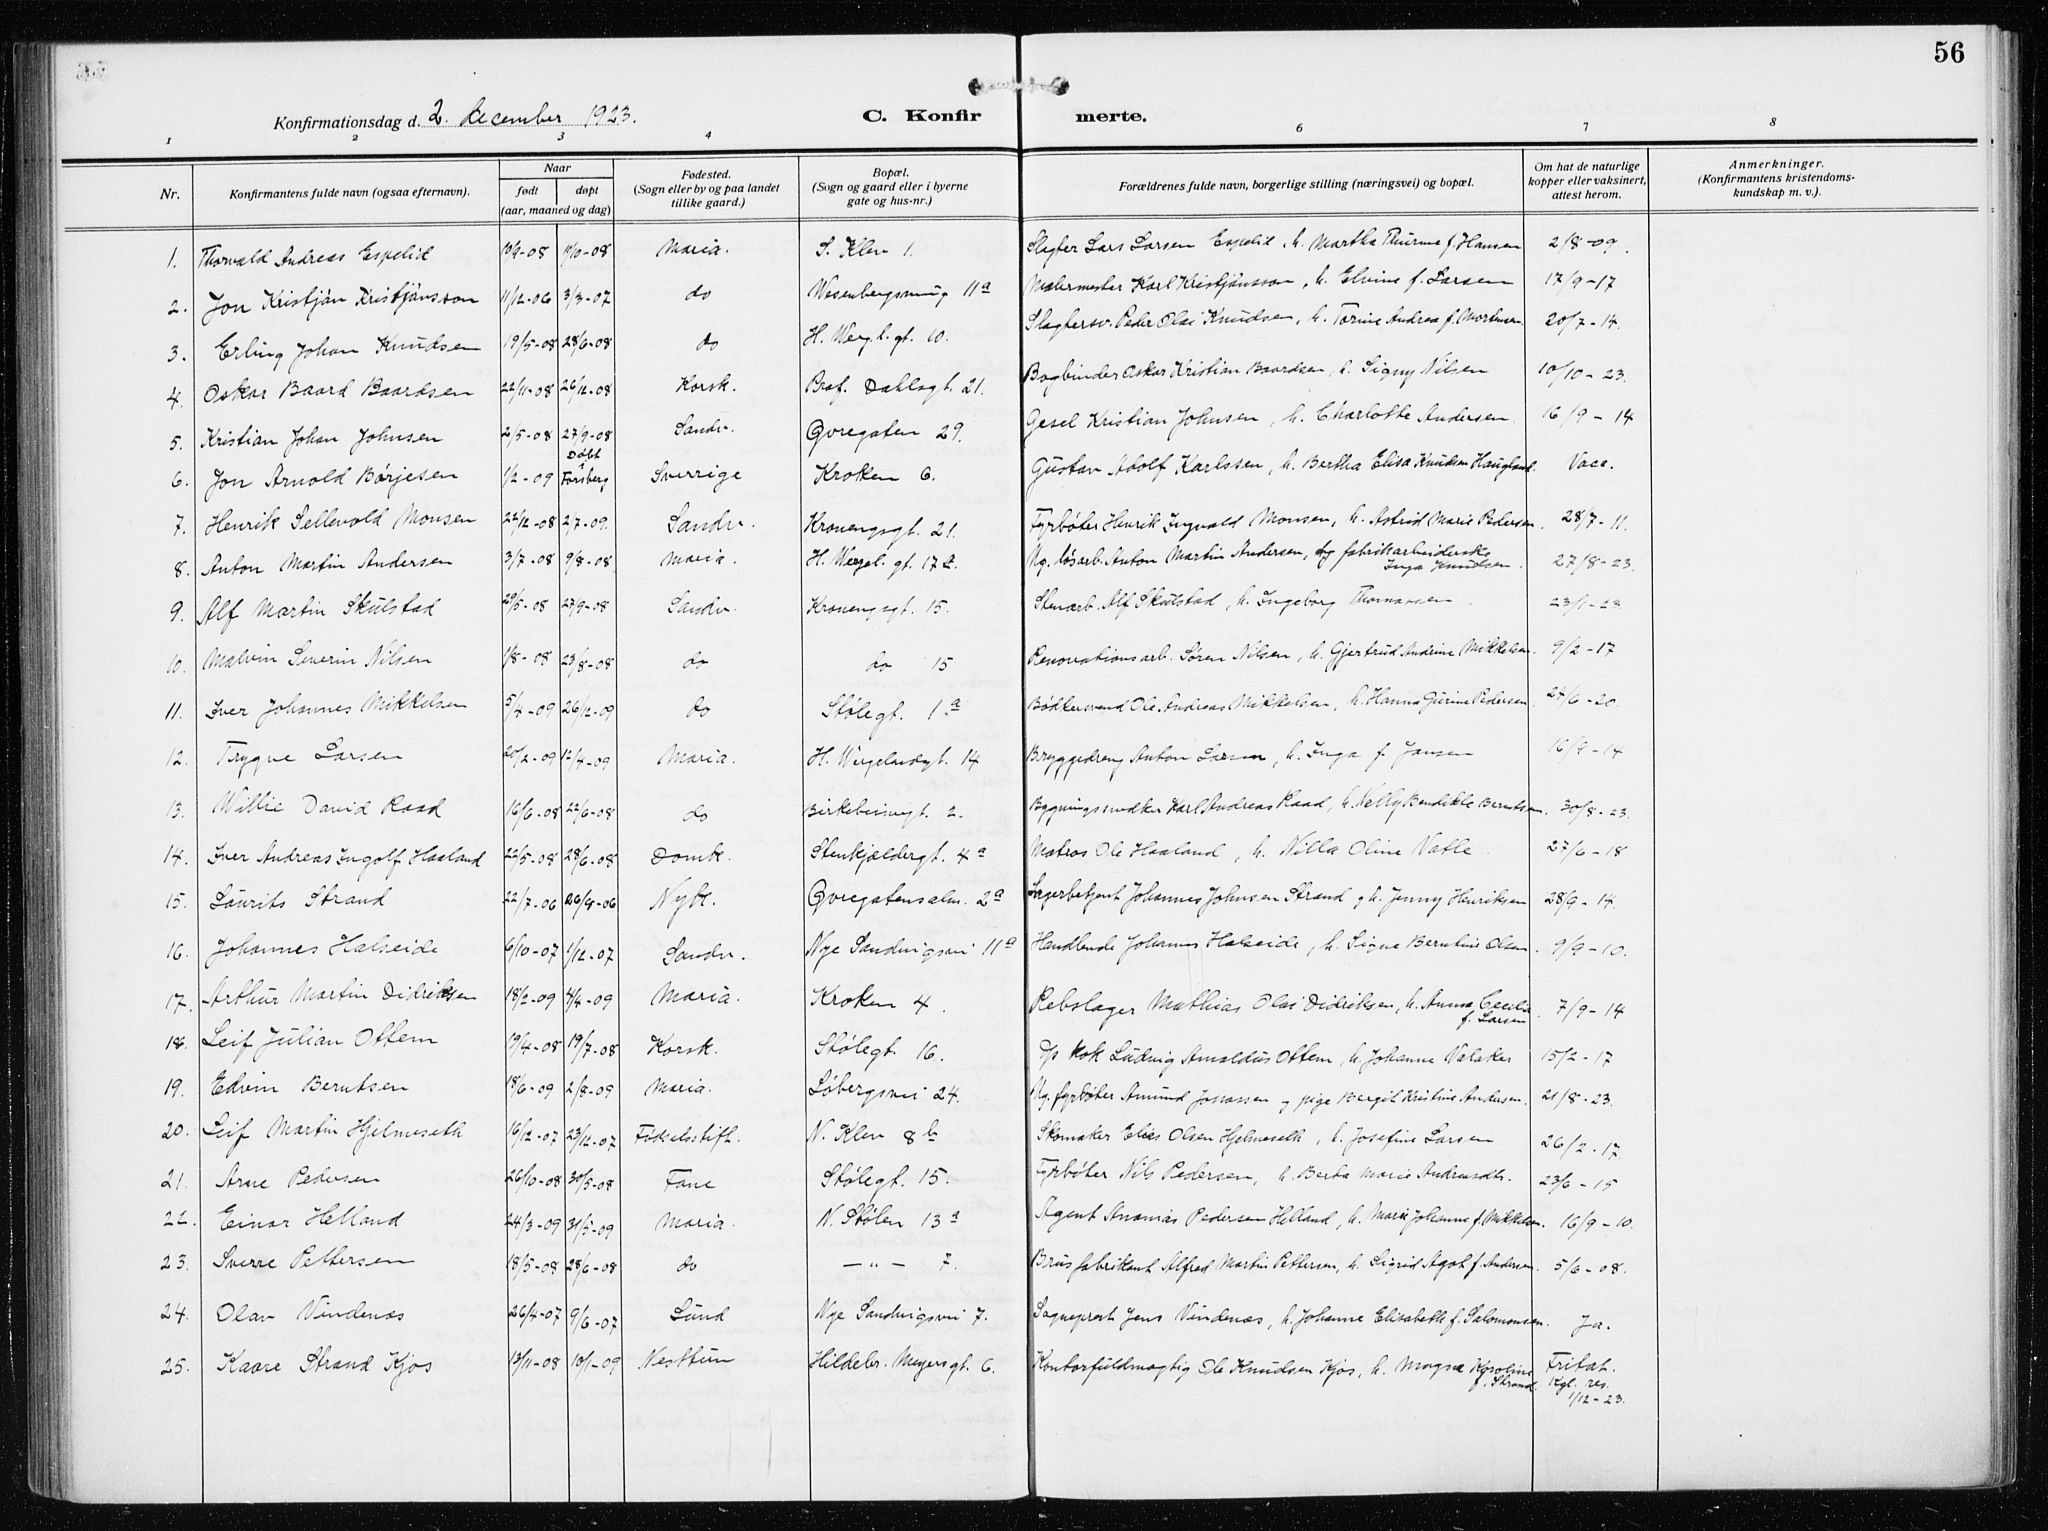 56
Konfirmationsdag d. 2. december 1923.
C. Konfirmerte.
1 2 3 4 6 7 8
Nr.
Konfirmantens fulde navn (ogsaa efternavn).
Naar
født døpt
(aar, maaned og dag)
Fødested.
(Sogn eller by og paa landet
tillike gaard.)
Bopæl.
(Sogn og gaard eller i byerne
gate og hus-nr.)
Forældrenes fulde navn, borgerlige stilling (næringsvei) og bopæl.
Om hat de naturlige
kopper eller vaksinert,
attest herom.
Anmerkninger.
(Konfirmantens kristendoms-
kundskap m. v.).
1. Thorvald Andreas Espelid 10/9-08 11/10-08 Maria. S. Klev 1. Slagter Lars Larsen Espelid h. Martha Thurine f. Hansen 2/8-09.
2. Jon Kristján Kristjánsson 11/12-06 3/3-07 do Wesenbergsmug 11a Malermester Karl Kristjánsson, h. Elvine f. Larsen 17/9-17
3. Erling Johan Knudsen 19/5-08 28/6-08 do H. Wergl. gt. 10. Slagtersv. Peder Olai Knudsen, h. Torine Andrea f. Mortensen. 20/7-14.
4. Oskar Baard Baardsen 22/11-08 26/12-08 Korsk. Prof. Dahlsgt. 21. Bogbinder Oskar Kristian Baardsen, h. Signy Nilsen 10/10-23.
5. Kristian Johan Johnsen 2/5-08 27/9-08 Sandv. Øvregaten 29. Gesel Kristian Johnsen, h. Charlotte Andersen. 16/9-14
6. Jon Arnold Børjesen 1/2-09 Døbt i Forsberg Sverrige Kroken 6. Gustav Adolf Karlssen, h. Bertha Elisa Knudsen Haugland. Vacc.
7. Henrik Sellevold Monsen 22/12-08 2/7-09. Sandv. Kroneng​sgt. 21. Fyrbøter Henrik Ingvald Monsen, h. Astrid Marie Pedersen. 28/7-11.
8. Anton Martin Andersen 3/7-08 9/8-08 Maria. H. Wergel. gt. 17a. Ug. løsarb. Anton Martin Andersen, og fabrikarbeiderske
Inga Knudsen. 27/8-23.
9. Alf Martin Skulstad 29/5-08 27/9-08 Sandv. Kronengsgt. 15. Stenarb. Alf Skulstad, h. Ingeborg Thomassen. 23/1-23
10. Malvin Severin Nilsen 1/8-08 23/8-08 do do 15 Renovationsarb. Søren Nilsen, h. Gjertrud Andrine Mikkelsen. 9/2-17
11. Iver Johannes Mikkelsen 5/4-09 26/12-09 do Stølegt. 1a Bødkersvend Ole Andreas Mikkelsen, h. Hanna Gurine Pedersen 24/6-20.
12. Trygve Larsen 20/2-09 12/4-09 Maria. H. Wergelandsgt. 14 Bryggedreng Anton Larsen, h. Inga f. Jansen 16/9-14
13. Willie David Raad 16/6-08 22/6-08 do Birkebeinergt. 2. Bygningssnedker Karl Andreas Raad, h. Nelly Bendikte Berntsen. 30/8-23.
14. Iver Andreas Ingolf Haaland 22/5-08 28/6-08 Domk. Stenkjeldergt. 4a Matros Ole Haaland, h. Nilla Oline Vatle. 27/6-18
15. Laurits Strand 22/7-06 26/8-06 Nyk. Øvregatensalm. 2a Lagerbetjent Johannes Johnsen Strand og h. Jenny Henriksen 28/9-14.
16. Johannes Halseide 6/10-07 1/12-07 Sandv. Nye Sandvigsvei 11a Handlende Johannes Halseide, h. Signe Berntine Olsen. 9/9-10.
17. Arthur Martin Didriksen 18/2-09 4/4-09 Maria. Kroken 4. Rebslager Mathias Olai Didriksen, h. Anna Cecilia
f. Larsen. 7/9-14
18. Leif Julian Ottem 19/4-08 19/7-08 Korsk. Stølegt. 16. d/s kok Ludvig Arnoldus Ottem, h. Johanne Valaker 15/2-17
19. Edvin Berntsen 18/6-09 2/8-09 Maria. Løbergsvei 24. Ug. fyrbøter Amund Jonassen og pige Bergit Kristine Andersen. 21/8-23.
20. Leif Martin Hjelmeseth 16/12-07 23/12-07 Fødselsstift. N. Klev 8b Skomaker Elias Olsen Hjelmeseth, h. Josefine Larsen 26/2-17.
21. Arne Pedersen 26/10-08 30/5-08 Fane Stølegt. 15. Fyrbøter Nils Pedersen, h. Berta Marie Andreasdtr. 23/6-15
22. Einar Helland 24/3-09 31/5-09 Maria. N. Stølen 13a Agent Ananias Pedersen Helland, h. Marie Johanne f. Mikkelsen. 16/9-10.
23. Sverre Pettersen 18/5-08 28/6-08 do —„— 7. Brusfabrikant Alfred Martin Pettersen, h. Sigrid Agot f. Andersen. 5/6-08.
24. Olav Vindenæs 26/4-07 9/6-07 Lund Nye Sandvigsvei 7. Sogneprest Jens Vindenæs, h. Johanne Elisabeth f. Salomonsen. Ja.
25. Kaare Strand Kjos 13/11-08 10/1-09 Nesttun Hildebr. Meyersgt. 6. Kontorfuldmægtig Ole Knudsen Kjos, h. Magna Karoline
f. Strand. Fritat.
Kgl. res.
1/12-23.